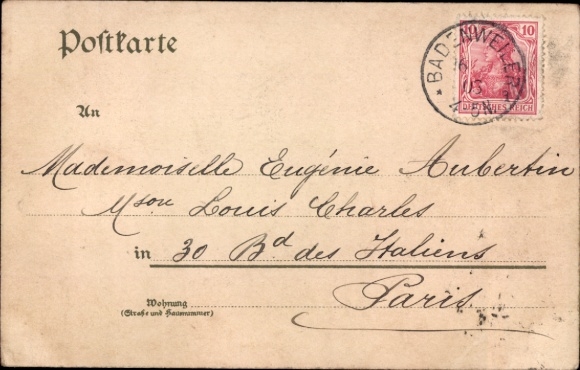 Postkarte
10 10
BADENWEILER
16
05
4-5N.
DEUTSCHES REICH
An
Mademoiselle Eugénie Aubertin
Mson Louis Charles
in 30 Bd des Italiens
Paris.
Wohnung
(Straße und Hausnummer)